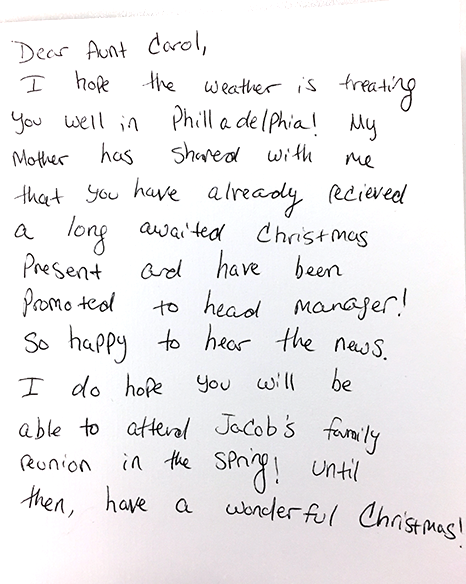 Dear Aunt Carol,
I hope the weather is treating
you well in Philladelphia! My
Mother has shared with me
that you have already recieved
a long awaited Christmas
Present and have been
Promoted to head manager!
So happy to hear the news.
I do hope you will be
able to attend Jacob's family
reunion in the spring! Until
then, have a wonderful Christmas!